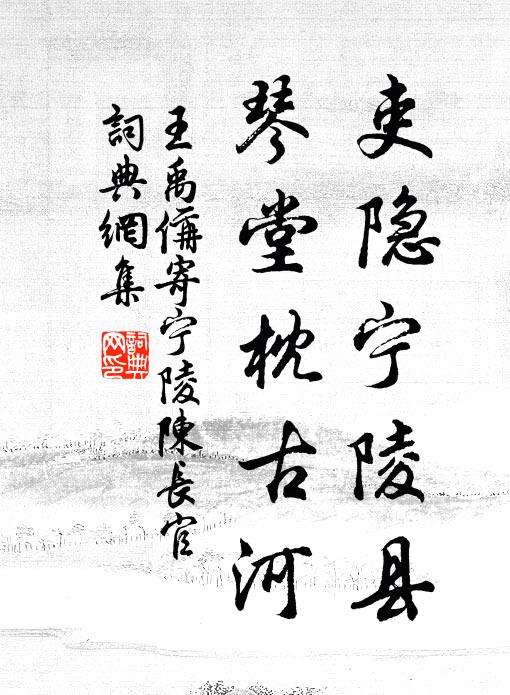 吏隐宁陵县
琴堂枕古河
王禹偁寄宁陵陳長官
詞典網集
詞典网印